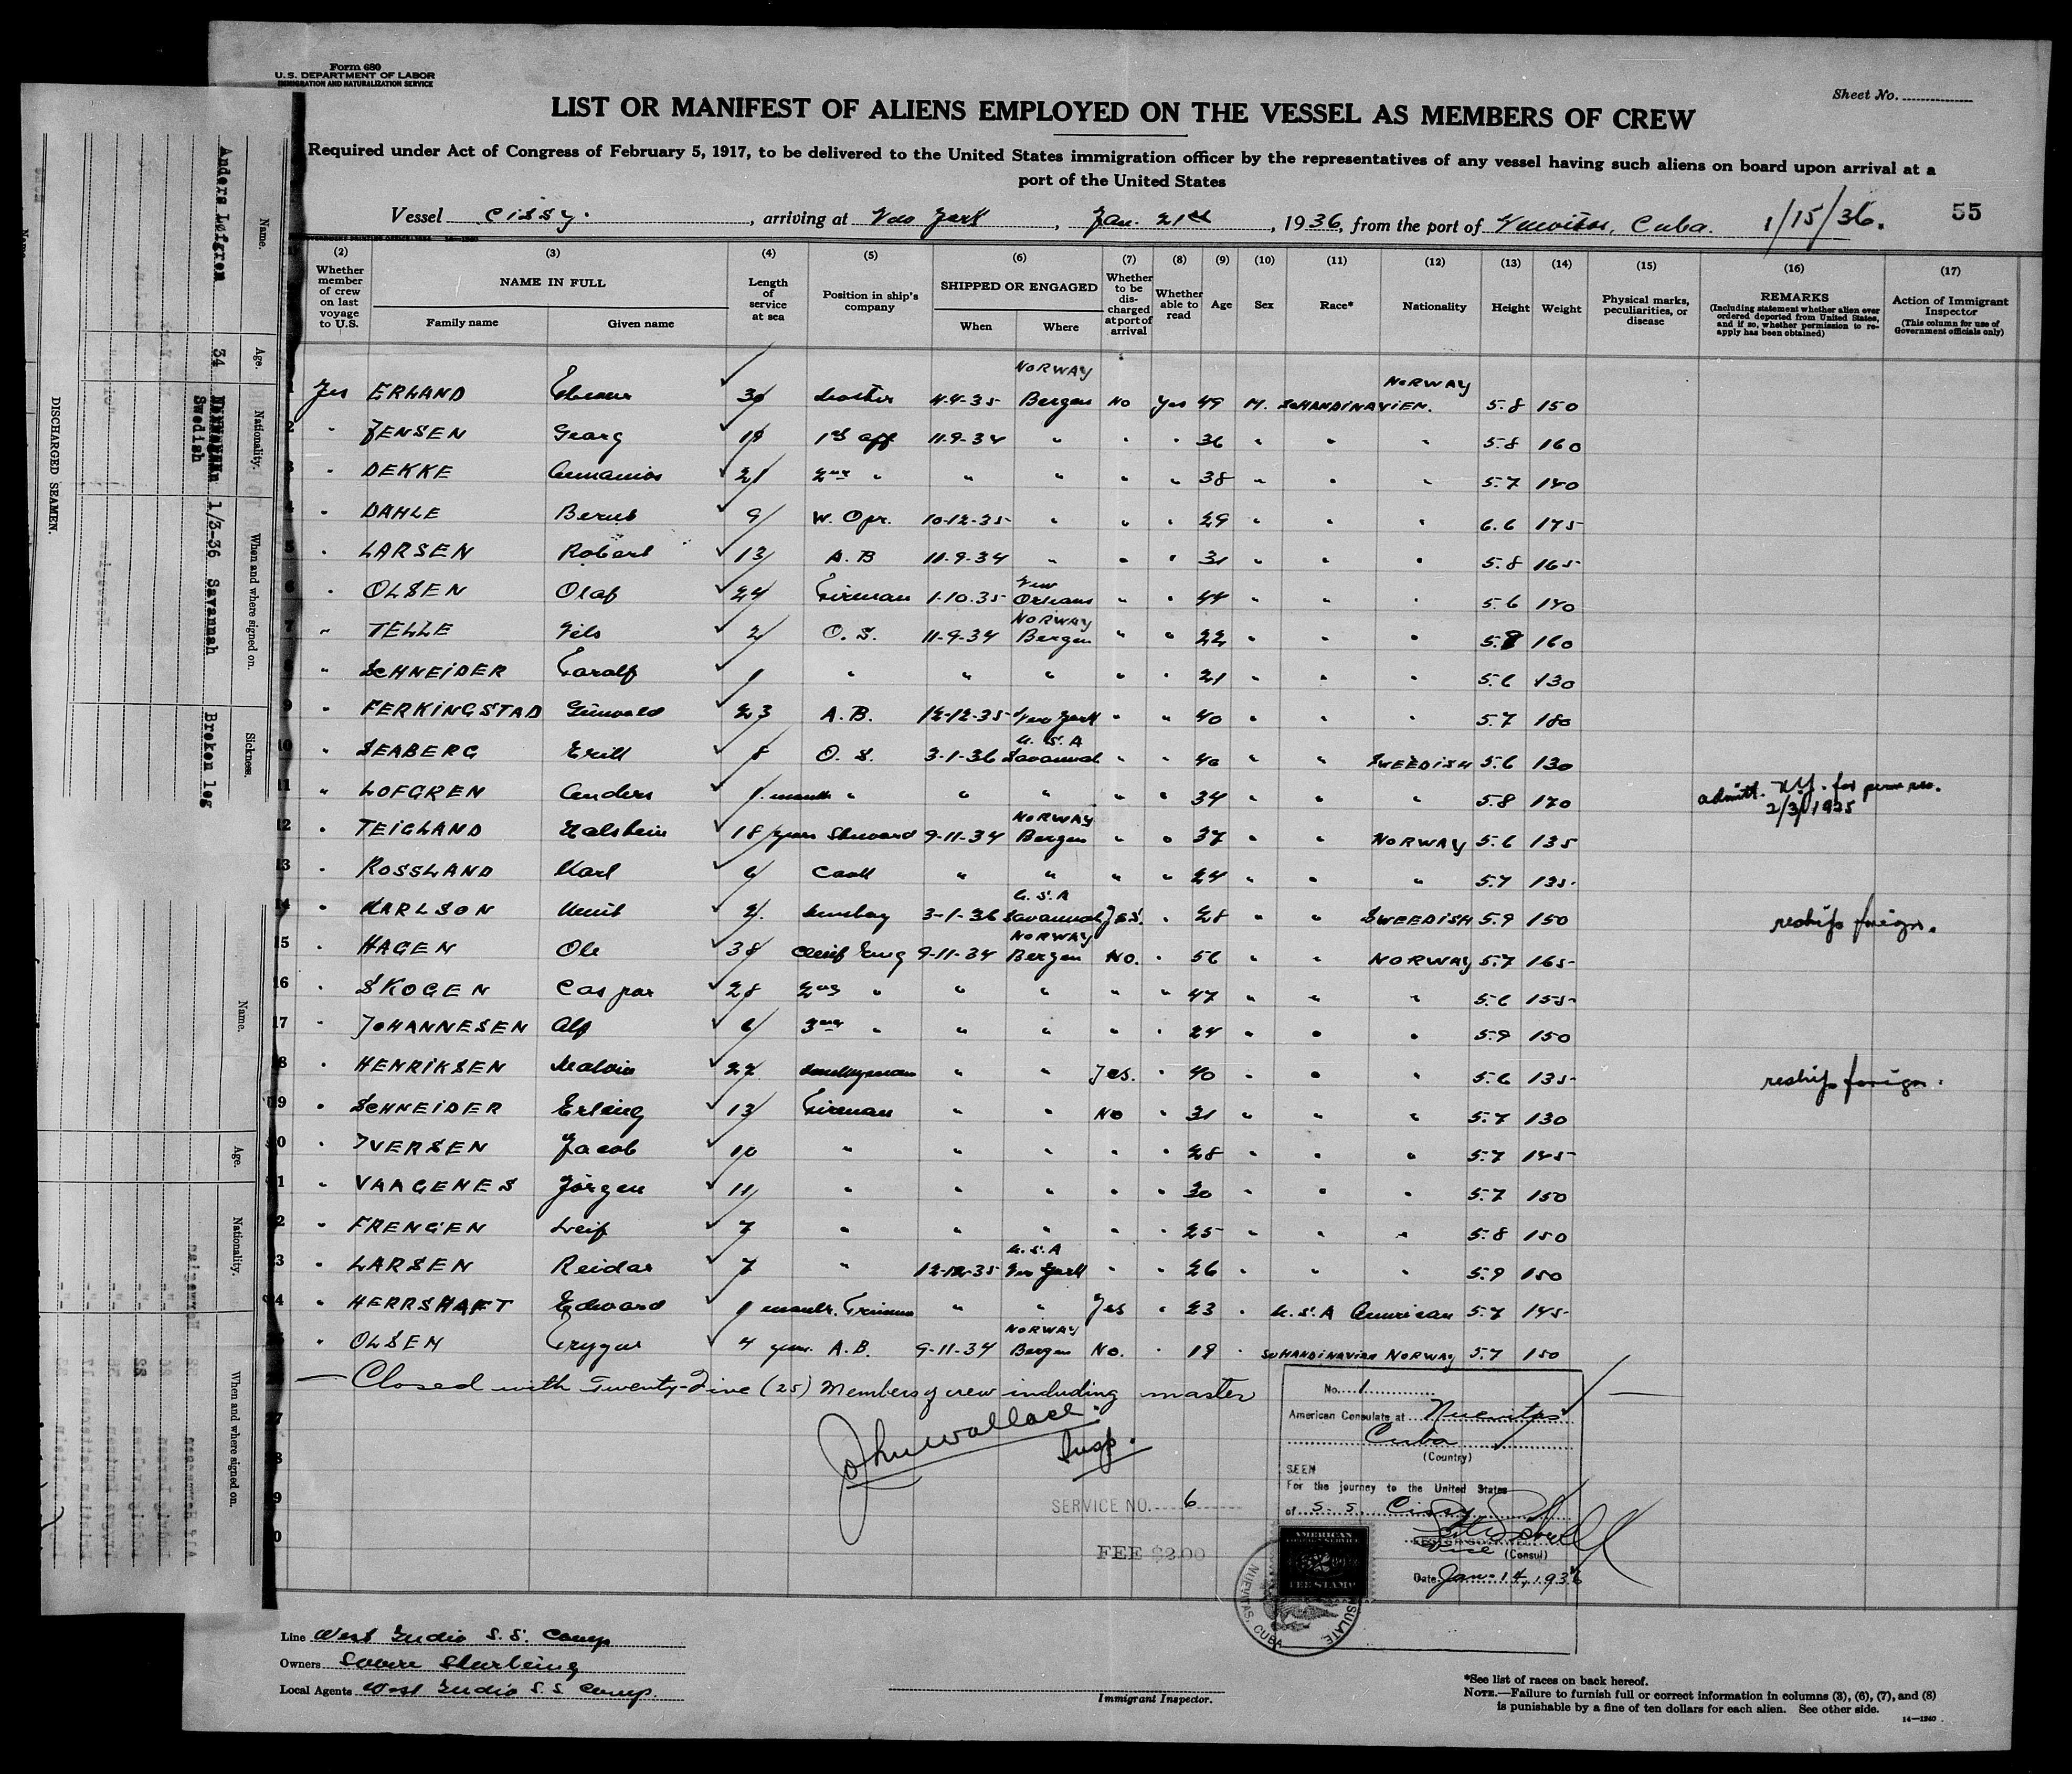 Form 680
U.S. DEPARTMENT OF LABOR
IMMIGRATION AND NATURALIZATION SERVICE
Sheet No.
LIST OR MANIFEST OF ALIENS EMPLOYED ON THE VESSEL AS MEMBERS OF CREW
Required under Act of Congress of February 5, 1917, to be delivered to the United States immigration officer by the representatives of any vessel having such aliens on board upon arrival at a
port of the United States
Vessel Cissy. , arriving at New York , Jan. 21st , 1936, from the port of Nuevitas, Cuba. 1/15/36. 55
(2) Whether member of crew on last voyage to U.S.
(3) NAME IN FULL Family name Given name
(4) Length of service at sea
(5) Position in ship's company
(6) SHIPPED OR ENGAGED When Where
(7) Whether to be discharged at port of arrival
(8) Whether able to read
(9) Age
(10) Sex
(11) Race*
(12) Nationality
(13) Height
(14) Weight
(15) Physical marks, peculiarities, or disease
(16) REMARKS (Including statement whether alien ever ordered deported from United States, and if so, whether permission to reapply has been obtained)
(17) Action of Immigrant Inspector (This column for use of Government officials only)
NORWAY NORWAY
1 Yes ERLAND 30 4-4-35 Bergen No Yes 49 M. SKANDINAVIEN. 5.8 150
2 " JENSEN Georg 1st off 11-9-34 " " " 36 " " " 5.8 160
3 " DEKKE 21 2nd " " " " " 38 " " " 5.7 140
4 " DAHLE Bernt 9 W. Opr. 10-12-35 " " " 29 " " " 6.6 175
5 " LARSEN Robert 13 A.B 11-9-34 " " " 31 " " " 5.8 165
6 " OLSEN Olaf 24 Fireman 1-10-35 New Orleans " " 44 " " " 5.6 140
NORWAY
7 " TELLE Nils 2 O.S. 11-9-34 Bergen " " 22 " " " 160
8 " SCHNEIDER Taralf 1 " " " " " 21 " " " 5.6 130
9 " FERKINGSTAD Gunvald 23 A.B. 12-12-35 New York " " 40 " " " 5.7 180
U.S.A
10 " SEABERG Erik 8 O.S. 3-1-36 Savannah " " 40 " " SWEEDISH 5.6 130
11 " LOFGREN Anders 1 month " " " " " 34 " " " 5.8 170 admitt. N.Y. for perm res. 2/3/1925
NORWAY
12 " TEIGLAND Halstein 18 years Steward 9-11-34 Bergen " " 37 " " NORWAY 5.6 135
13 " ROSSLAND Karl 6 Cook " " " " 24 " " " 5.7 135
U.S.A
14 " KARLSON Knut 2 3-1-36 Savannah Yes. " 28 " " SWEEDISH 5.9 150 reships foreign.
NORWAY
15 " HAGEN Ole 38 Chief Eng 9-11-34 Bergen No. " 56 " " NORWAY 5.7 165
16 " SKOGEN Caspar 28 2nd " " " " " 47 " " " 5.6 155
17 " JOHANNESEN Alf 6 3rd " " " " " 24 " " " 5.9 150
18 " HENRIKSEN Malvin 22 Donkeyman " " Yes. " 40 " " " 5.6 135 reships foreign.
19 " SCHNEIDER Erling 13 Fireman " " No " 31 " " " 5.7 130
20 " IVERSEN Jacob 10 " " " " " 28 " " " 5.7 145
21 " VAAGENES Jörgen 11 " " " " " 30 " " " 5.7 150
22 " FRENGEN Leif 7 " " " " " 25 " " " 5.8 150
U.S.A
23 " LARSEN Reidar 7 " 12-12-35 New York " " 26 " " " 5.9 150
24 " HERRSHAFT Edward 1 month. Trimmer " " Yes " 23 " U.S.A American 5.7 145
NORWAY
25 " OLSEN Trygve 4 years A.B. 9-11-34 Bergen No. " 19 " SKANDINAVIEN NORWAY 5.7 150
Closed with Twenty-Five (25) Members of crew including master
John Wallace
Insp.
SERVICE NO. 6
FEE $2.00
No. 1
American Consulate at Nuevitas
Cuba
(Country)
SEEN
For the journey to the United States
of S.S. Cissy
Vice (Consul)
Date Jan. 14, 1936
AMERICAN
FEE STAMP
NUEVITAS, CUBA
Line West India S.S. Comp
Owners
Local Agents West India S.S. Comp.
Immigrant Inspector.
*See list of races on back hereof.
NOTE.—Failure to furnish full or correct information in columns (3), (6), (7), and (8)
is punishable by a fine of ten dollars for each alien. See other side.
14—1240
DISCHARGED SEAMEN.
Name. Age. Nationality. When and where signed on. Sickness.
Anders Lofgren 34 Swedish 1/3-36 Savannah Broken leg
Name. Age. Nationality. When and where signed on.